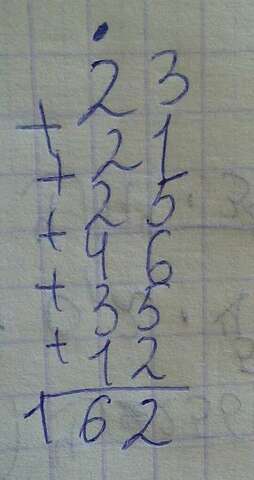 23
+ 21
+ 25
+ 46
+ 35
+ 12
162